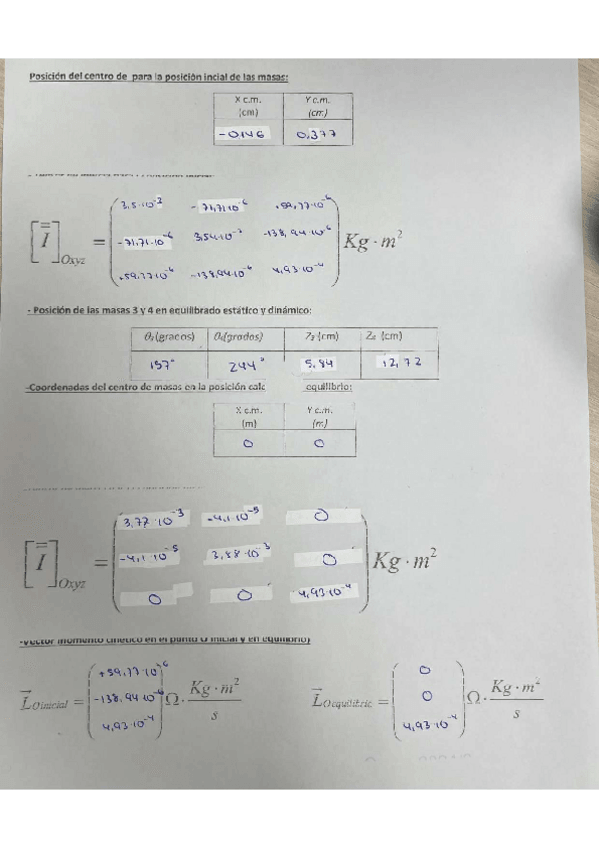 Posición del centro de para la posición incial de las masas:
X c.m. (cm) Y c.m. (cm)
-0,146 0,377
3,5·10⁻² -71,71·10⁻⁶ +59,77·10⁻⁶
[I]Oxyz = -71,71·10⁻⁶ 3,54·10⁻² -138,94·10⁻⁶ Kg·m²
+59,77·10⁻⁶ -138,94·10⁻⁶ 4,93·10⁻⁴
- Posición de las masas 3 y 4 en equilibrado estático y dinámico:
θ₃(grados) θ₄(grados) Z₃(cm) Z₄ (cm)
157° 244° 5,84 12,72
-Coordenadas del centro de masas en la posición calc equilibrio:
X c.m. (m) Y c.m. (m)
0 0
3,77·10⁻³ -4,1·10⁻⁵ 0
[I]Oxyz = -4,1·10⁻⁵ 3,88·10⁻³ 0 Kg·m²
0 0 4,93·10⁻⁴
-Vector momento cinético en el punto O inicial y en equilibrio)
+59,77·10⁻⁶ 0
LOinicial = -138,94·10⁻⁶ Ω· Kg·m²/s LOequilibric = 0 Ω· Kg·m²/s
4,93·10⁻⁴ 4,93·10⁻⁴